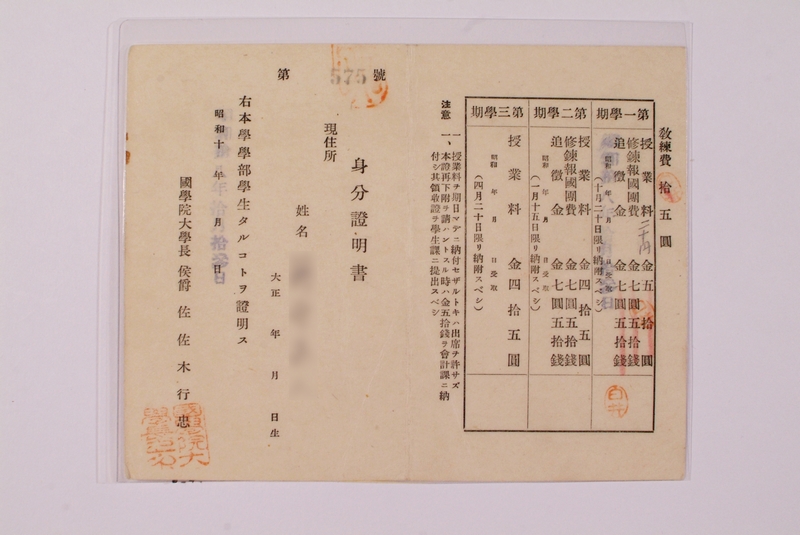 教練費 拾五圓
第一學期
授業料 金五拾圓
修錬報國團費 金七圓五拾錢
追徵金 金七圓五拾錢
昭和 年 月 日受取
(十月二十日限リ納附スベシ)
第二學期
授業料 金四拾五圓
修錬報國團費 金七圓五拾錢
追徵金 金七圓五拾錢
昭和 年 月 日受取
(一月十五日限リ納附スベシ)
第三學期
授業料 金四拾五圓
昭和 年 月 日受取
(四月二十日限リ納附スベシ)
注意
一、授業料ヲ期日マデニ納付セザルトキハ出席ヲ許サズ
一、本證再下附ヲ請ハントスル時ハ金五拾錢ヲ會計課ニ納
付シ其領收證ヲ學生課ニ提出スベシ
第575號
身分證明書
現住所
姓名
大正 年 月 日生
右本學學部學生タルコトヲ證明ス
昭和十 年 月 日
國學院大學長 侯爵 佐佐木行忠